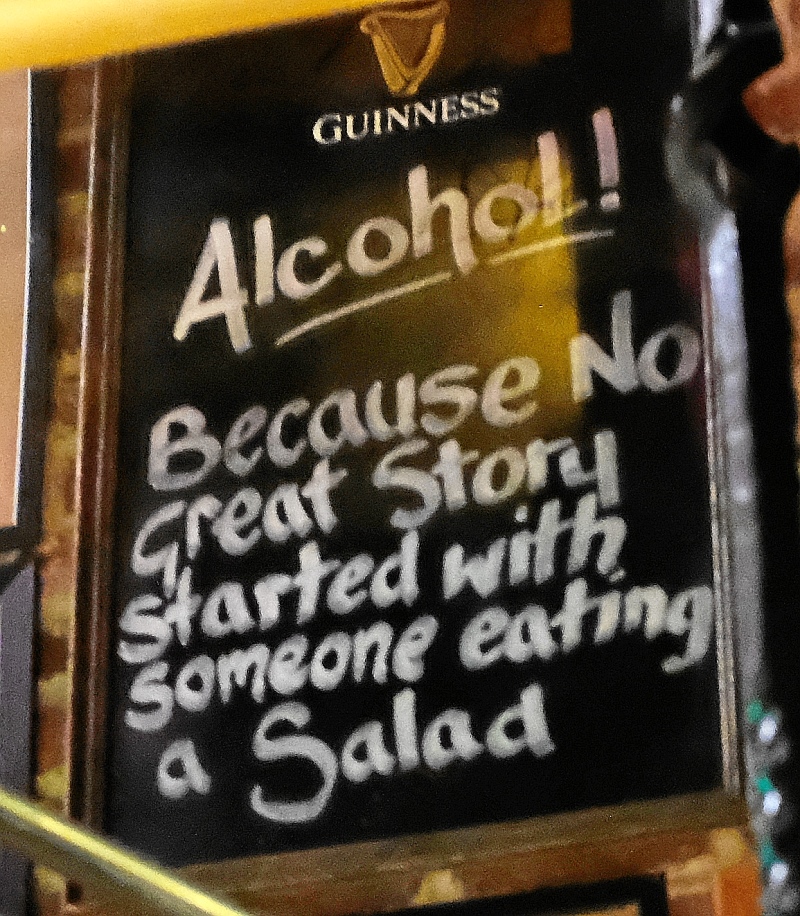 GUINNESS
Alcohol!
Because No
Great Story
started with
someone eating
a Salad